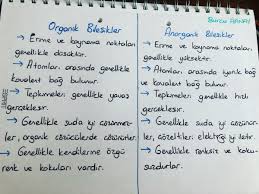 Organik Bileşikler
→ Erime ve kaynama noktaları
genellikle düşüktür.
→ Atomları arasında genellikle
kovalent bağ bulunur.
→ Tepkimeleri genellikle yavaş
gerçekleşir.
→ Genellikle suda iyi çözünmez-
ler, organik çözücülerde çözünürler.
→ Genellikle kendilerine özgü
renk ve kokuları vardır.
Burcu
Anorganik Bileşikler
→ Erime ve kaynama noktaları
genellikle yüksektir.
→ Atomları arasında iyonik bağ
ve kovalent bağ bulunur.
→ Tepkimeleri genellikle hızlı
gerçekleşir.
→ Genellikle suda iyi çözünür-
ler, çözeltileri elektriği iyi iletir.
→ Genellikle renksiz ve koku-
suzdurlar.